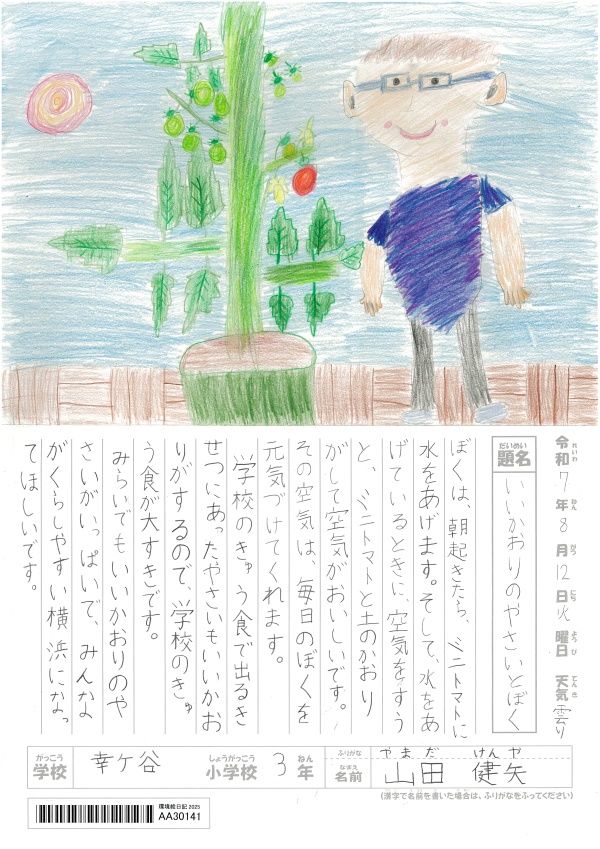 令和7年8月12日火曜日 天気 曇り
れいわ ねん がつ にち ようび てんき
だいめい
題名 いいかおりのやさいとぼく
ぼくは、朝起きたら、ミニトマトに
水をあげます。そして、水をあ
げているときに、空気をすう
と、ミニトマトと土のかおり
がして空気がおいしいです。
その空気は、毎日のぼくを
元気づけてくれます。
学校のきゅう食で出るき
せつにあったやさいもいいかお
りがするので、学校のきゅ
う食が大すきです。
みらいでもいいかおりのや
さいがいっぱいで、みんな
がくらしやすい横浜になっ
てほしいです。
がっこう しょうがっこう ねん
学校 幸ケ谷 小学校 3年
ふりがな やまだ けんや
なまえ
名前 山田 健矢
(漢字で名前を書いた場合は、ふりがなをふってください)
環境絵日記 2025
AA30141